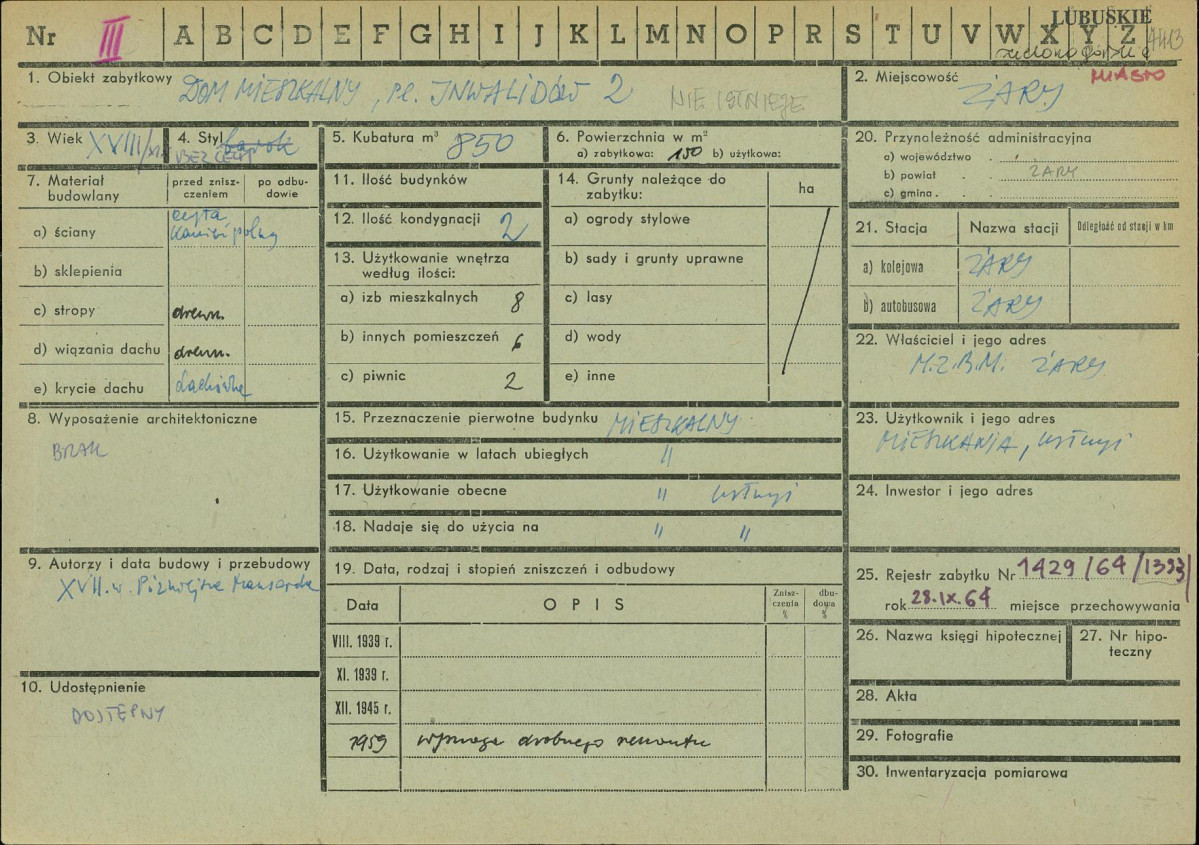 Nr III A B C D E F G H I J K L M N O P R S T U V W X Y Z
LUBUSKIE
zielonogórskie
1. Obiekt zabytkowy DOM MIESZKALNY, pl. INWALIDÓW 2 NIE ISTNIEJE
2. Miejscowość MIASTO
ŻARY
3. Wiek XVIII/
4. Styl barok
BEZ CECH
5. Kubatura m³ 850
6. Powierzchnia w m²
a) zabytkowa: 150 b) użytkowa:
20. Przynależność administracyjna
a) województwo
b) powiat ŻARY
c) gmina
7. Materiał budowlany
przed zniszczeniem
po odbudowie
a) ściany cegła
kamień polny
b) sklepienia
c) stropy drewn.
d) wiązania dachu drewn.
e) krycie dachu dachówka
11. Ilość budynków
12. Ilość kondygnacji 2
13. Użytkowanie wnętrza
według ilości:
a) izb mieszkalnych 8
b) innych pomieszczeń 6
c) piwnic 2
14. Grunty należące do
zabytku:
ha
a) ogrody stylowe
b) sady i grunty uprawne
c) lasy
d) wody
e) inne
21. Stacja Nazwa stacji Odległość od stacji w km
a) kolejowa ŻARY
b) autobusowa ŻARY
22. Właściciel i jego adres
M.Z.B.M. ŻARY
8. Wyposażenie architektoniczne
BRAK
15. Przeznaczenie pierwotne budynku MIESZKALNY
16. Użytkowanie w latach ubiegłych "
17. Użytkowanie obecne " usługi
18. Nadaje się do użycia na " "
23. Użytkownik i jego adres
MIESZKANIA, usługi
24. Inwestor i jego adres
9. Autorzy i data budowy i przebudowy
XVII. w. Późniejsza mansarda
10. Udostępnienie
DOSTĘPNY
19. Data, rodzaj i stopień zniszczeń i odbudowy
Data OPIS Znisz-
czenia
% dbu-
dowa
%
VIII. 1939 r.
XI. 1939 r.
XII. 1945 r.
1959 wymaga drobnego remontu
25. Rejestr zabytku Nr 1429/64/1393/
rok 28.IX.64 miejsce przechowywania
26. Nazwa księgi hipotecznej
27. Nr hipo-
teczny
28. Akta
29. Fotografie
30. Inwentaryzacja pomiarowa